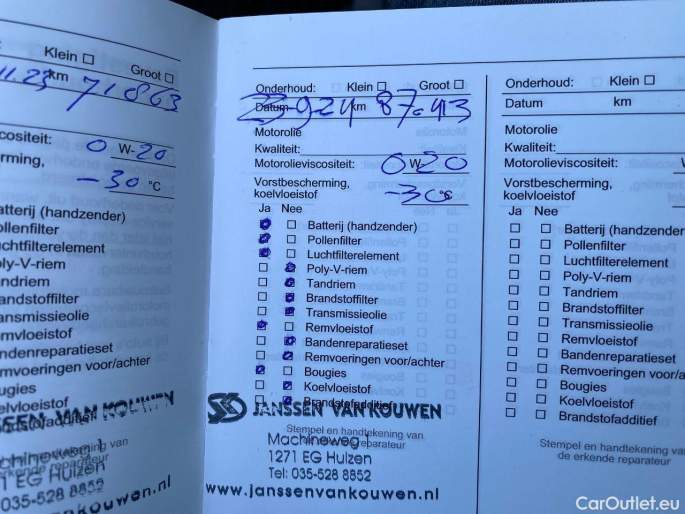 Klein Groot
11.23 km 71863
scositeit: 0 W-20
erming, -30 °C
atterij (handzender)
ollenfilter
uchtfilterelement
oly-V-riem
andriem
andstoffilter
ansmissieolie
emvloeistof
andenreparatieset
emvoeringen voor/achter
ougies
elvloeistof
JANSSEN VAN KOUWEN
kening van
erkende reparateur
1271 EG Huizen
035-528 8852
www.janssenvankouwen.nl
Onderhoud: Klein Groot
Datum 23-9-24 km 87.413
Motorolie
Kwaliteit:
Motorolieviscositeit: 0 W-20
Vorstbescherming,
koelvloeistof -30 °C
Ja Nee
Batterij (handzender)
Pollenfilter
Luchtfilterelement
Poly-V-riem
Tandriem
Brandstoffilter
Transmissieolie
Remvloeistof
Bandenreparatieset
Remvoeringen voor/achter
Bougies
Koelvloeistof
Brandstofadditief
JANSSEN VAN KOUWEN
Stempel en handtekening van
reparateur
Machineweg 1
1271 EG Huizen
Tel: 035-528 8852
www.janssenvankouwen.nl
Onderhoud: Klein
Datum km
Motorolie
Kwaliteit:
Motorolieviscositeit:
Vorstbescherming,
koelvloeistof
Ja Nee
Batterij (handzender
Pollenfilter
Luchtfilterelement
Poly-V-riem
Tandriem
Brandstoffilter
Transmissieolie
Remvloeistof
Bandenreparatieset
Remvoeringen voor/a
Bougies
Koelvloeistof
Brandstofadditief
Stempel en handtekening van
de erkende reparateur
CarOutlet.eu